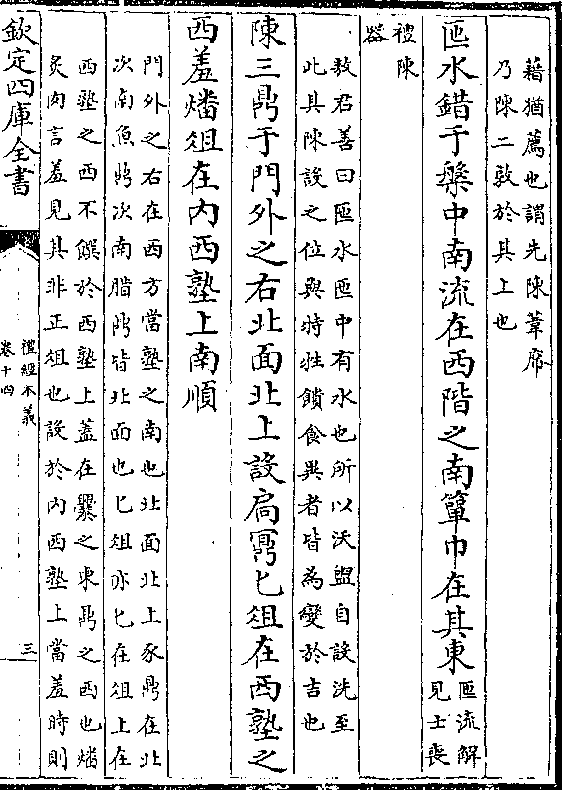 藉猶薦也謂先陳葦席
乃陳二敦於其上也
匜水錯于槃中南流在西階之南簞巾在其東匜流解
見士喪
禮陳
器
敖君善曰匜水匜中有水也所以沃盥自設洗至
此其陳設之位與特牲饋食異者皆為變於吉也
陳三鼎于門外之右北面北上設扃鼏匕俎在西塾之
西羞燔俎在内西塾上南順
門外之右在西方當塾之南也北面北上豕鼎在北
次南魚鼎次南腊鼎皆北面也匕俎亦匕在俎上在
西塾之西不饌於西塾上蓋在爨之東鼎之西也燔
炙肉言羞見其非正俎也設於内西塾上當羞時則
欽定四庫全書
禮經本義
卷十四
三